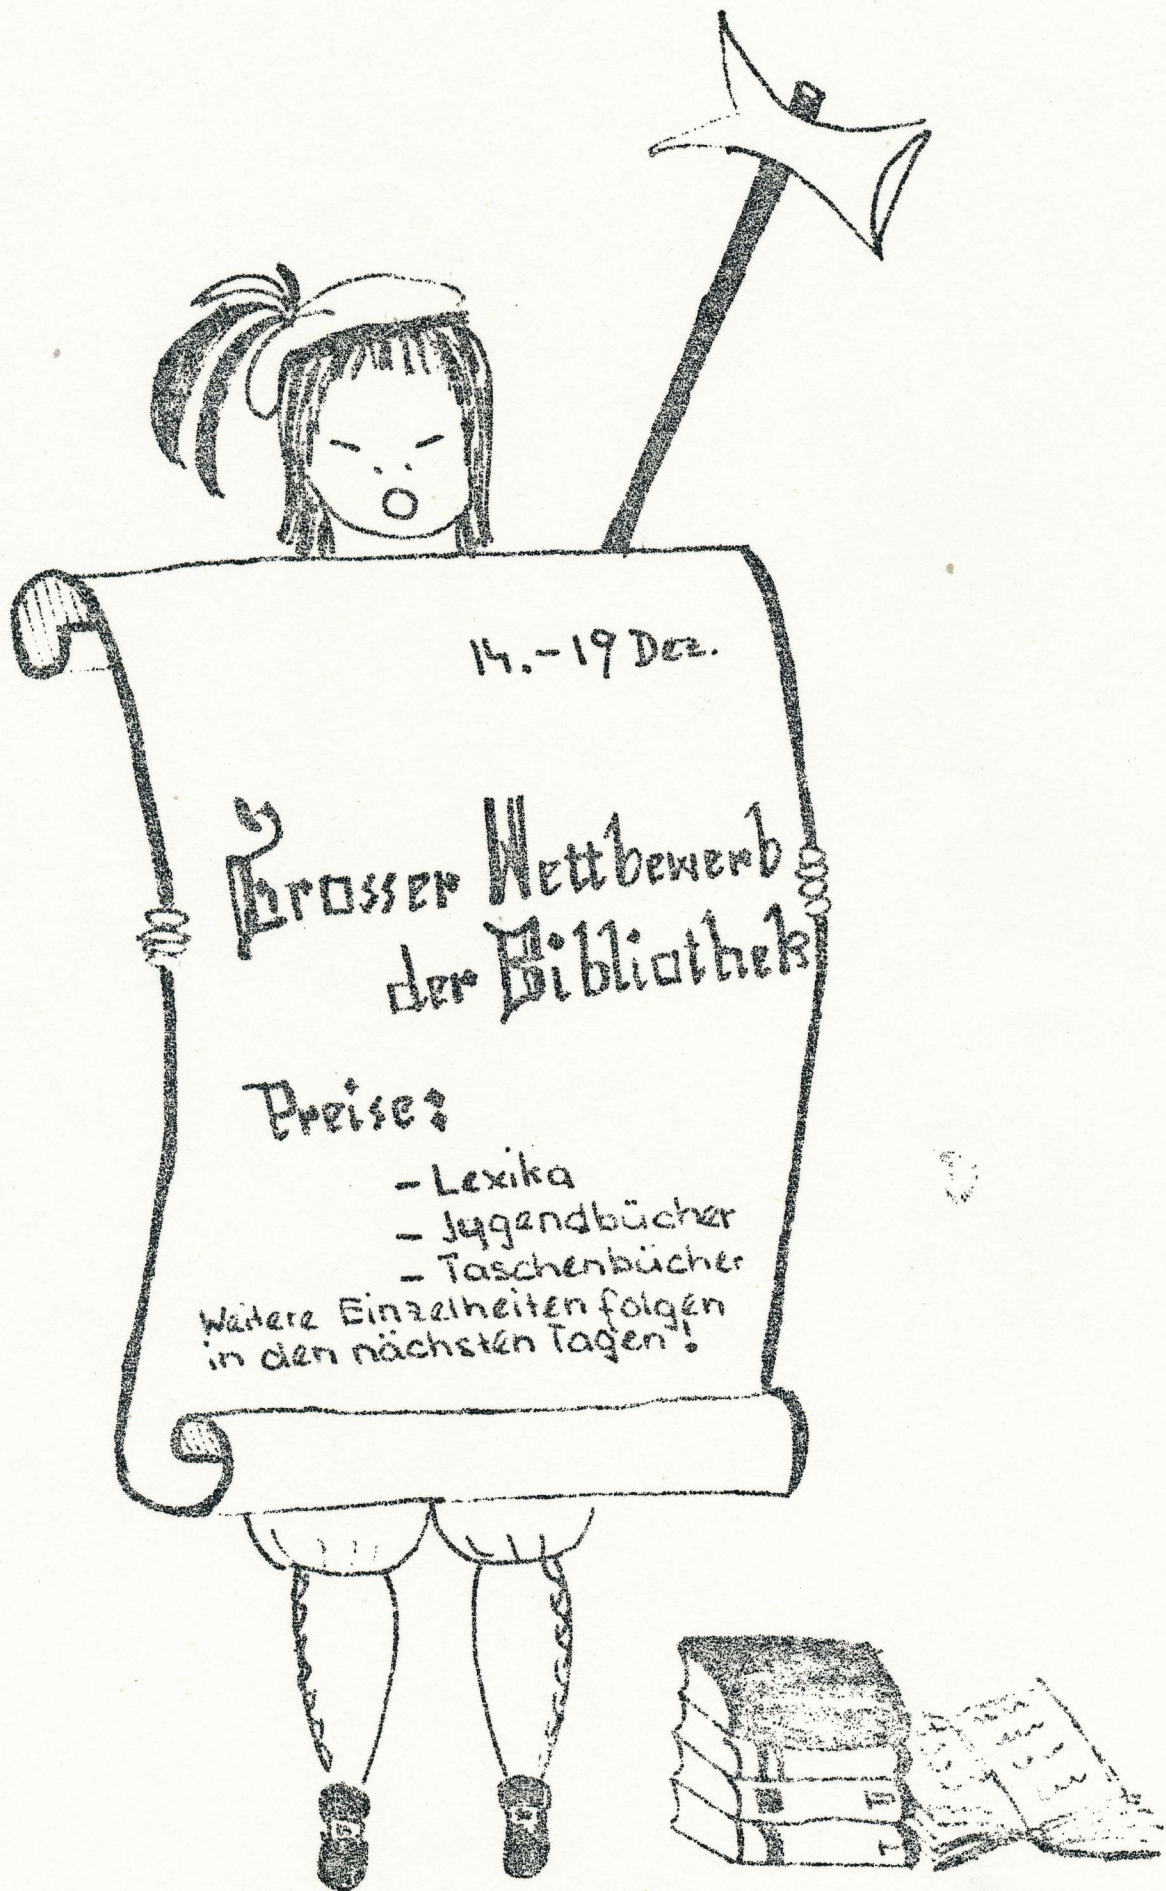 14.-19 Dez.
Grosser Wettbewerb
der Bibliothek
Preise:
- Lexika
- Jugendbücher
- Taschenbücher
Weitere Einzelheiten folgen
in den nächsten Tagen!